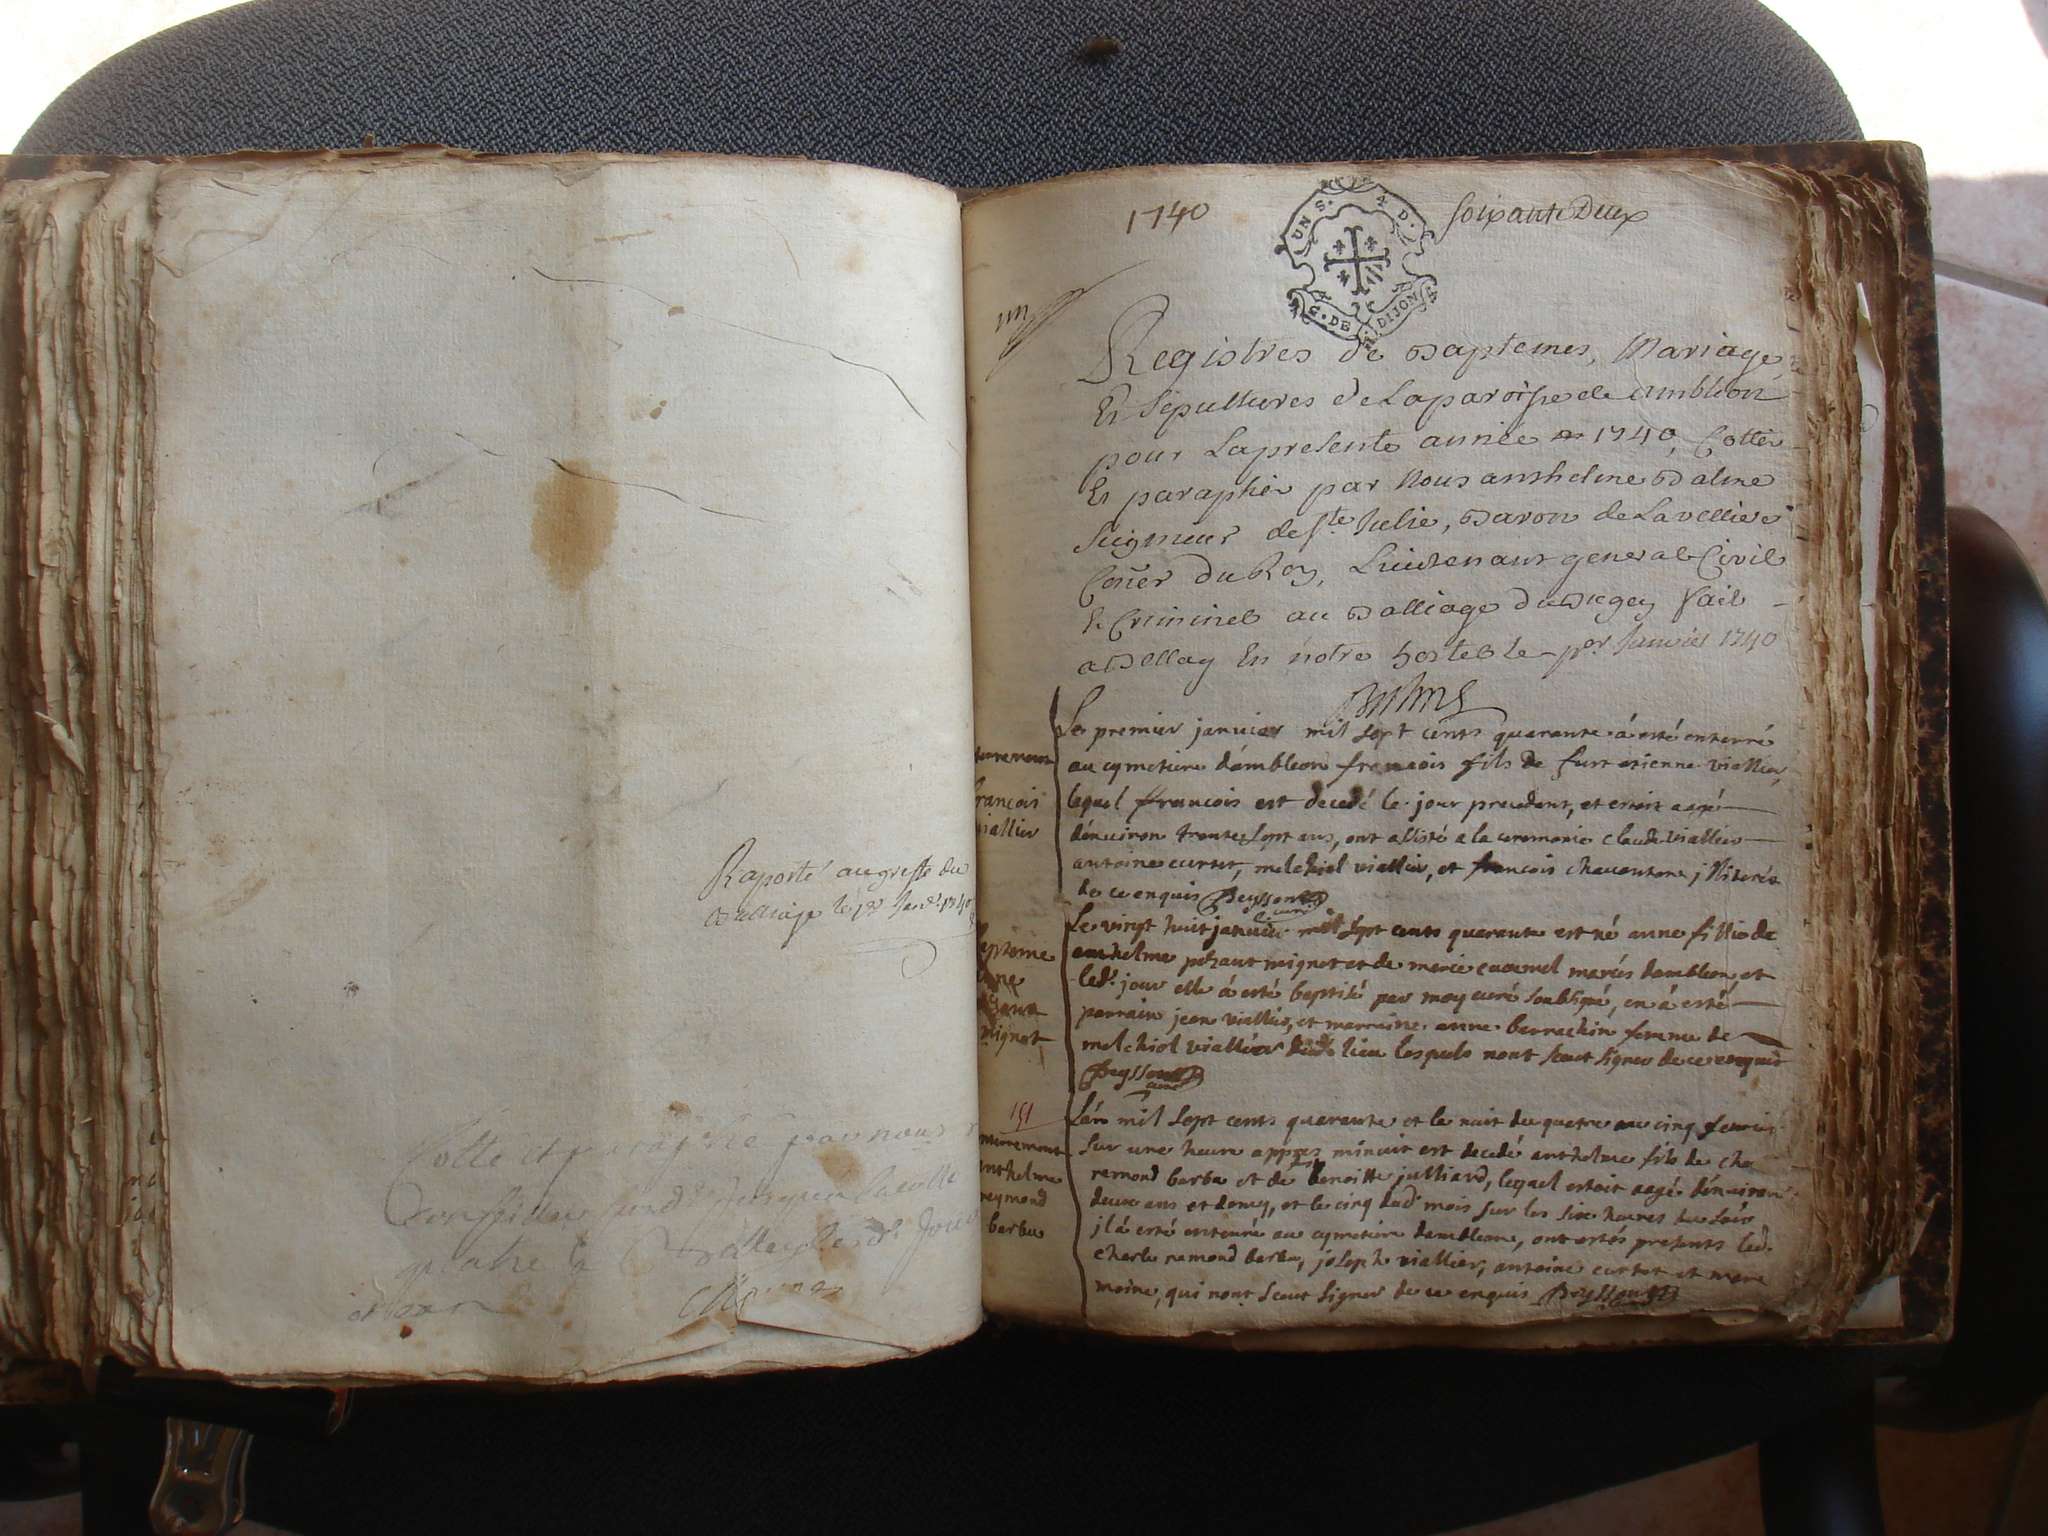 Raporté au greffe du
Balliage le pr Janr 1740
Cotté et paraphé par nous
1740
soixante Deux
UN S. 4 D.
G. DE DIJON
un
Registres de Baptemes, Mariage
Et Sepultures de La paroisse de Ambleon
pour La presente année 1740, Cotté
Et paraphé par Nous anthelme Balme
Seigneur de Ste Julie, Baron de La velliere
Coner du Roy, Lieutenant general Civil
& Criminel au Balliage du Bugey fait
a Bellay En notre hostel le pr Janvier 1740
Le premier janvier mil sept cents quarante á esté enterré
au cymetiere d'ambleon francois fils de furt etienne viallier,
lequel francois est decedé le jour precedent, et estoit aagé
d'environ trente sept ans, ont assisté a la ceremonie claude viallier
antoine curtet, melchiol viallier, et francois chaventone jlliterés
de ce enquis Beysson curé
terrement
françois
viallier
Le vingt huit janvier mil sept cents quarante est né anne fillie de
anthelme mignot et de marie mariés d'ambleon, et
led. jour elle á esté baptisé par moy curé soubsigné, en á esté
parrain jean viallier, et marraine anne barrachin femme de
melchiol viallier dud. lieu lesquels n'ont sceut signer de ce enquis
Beysson curé
mignot
151
L'an mil sept cents quarante et la nuit du quatre au cinq fevrier
sur une heure appres minuit est decedé anthelme fils de cha
remond barbu et de benoitte julliard, lequel estoit aagé d'environ
deux ans et demy, et le cinq dud. mois sur les six heures du soir
jl á esté enterré au cymetiere d'ambleon, ont estés presents led.
charle remond barbu, joseph viallier, antoine curtet et marc
moine, qui n'ont sceut signer de ce enquis Beysson
nterrement
anthelme
reymond
barbu